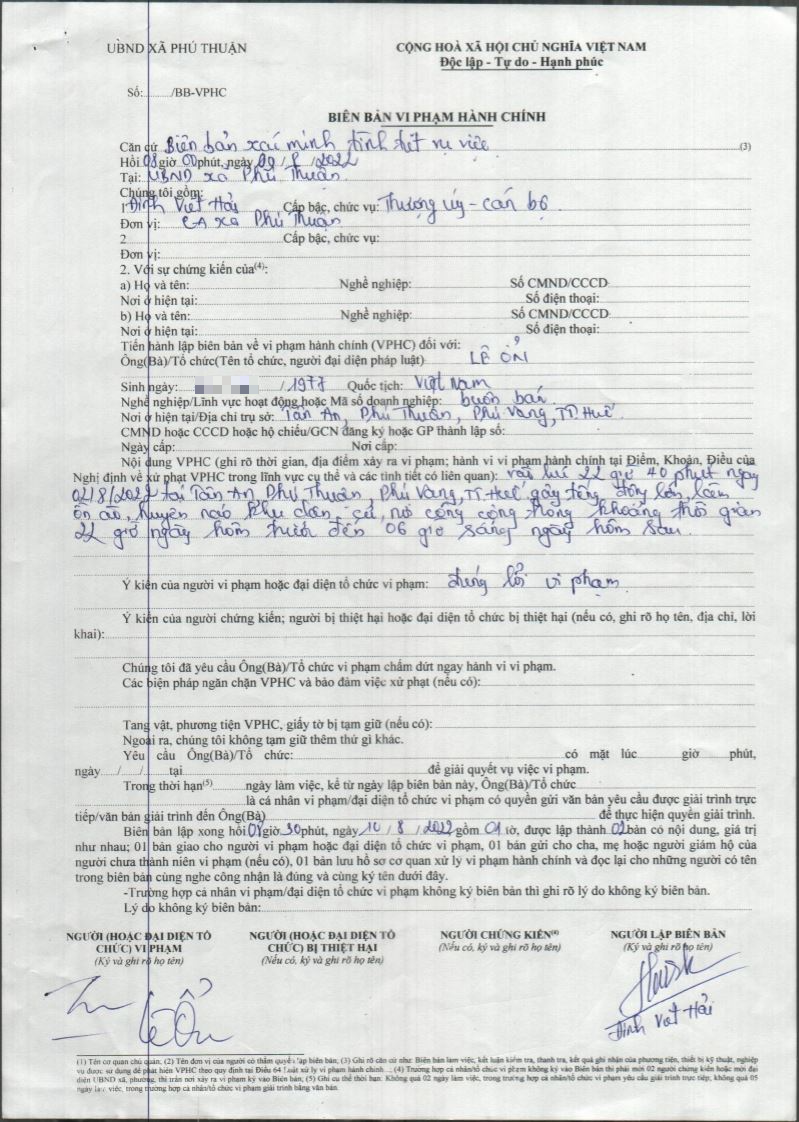 UBND XÃ PHÚ THUẬN
CỘNG HOÀ XÃ HỘI CHỦ NGHĨA VIỆT NAM
Độc lập - Tự do - Hạnh phúc
Số:........./BB-VPHC
BIÊN BẢN VI PHẠM HÀNH CHÍNH
Căn cứ Biên bản xác minh tình tiết vụ việc (3)
Hồi 08 giờ 00 phút, ngày /2022
Tại: UBND xã Phú Thuận.
Chúng tôi gồm:
1 Đinh Viết Hải Cấp bậc, chức vụ: Thượng úy - cán bộ
Đơn vị: CA xã Phú Thuận
2 Cấp bậc, chức vụ:
Đơn vị:
2. Với sự chứng kiến của(4):
a) Họ và tên: Nghề nghiệp: Số CMND/CCCD
Nơi ở hiện tại: Số điện thoại:
b) Họ và tên: Nghề nghiệp: Số CMND/CCCD
Nơi ở hiện tại: Số điện thoại:
Tiến hành lập biên bản về vi phạm hành chính (VPHC) đối với:
Ông(Bà)/Tổ chức(Tên tổ chức, người đại diện pháp luật) LÊ ỔN
Sinh ngày: /1977 Quốc tịch: Việt Nam
Nghề nghiệp/Lĩnh vực hoạt động hoặc Mã số doanh nghiệp: buôn bán
Nơi ở hiện tại/Địa chỉ trụ sở: Tân An, Phú Thuận, Phú Vang, TT. Huế
CMND hoặc CCCD hoặc hộ chiếu/GCN đăng ký hoặc GP thành lập số:
Ngày cấp: Nơi cấp:
Nội dung VPHC (ghi rõ thời gian, địa điểm xảy ra vi phạm; hành vi vi phạm hành chính tại Điểm, Khoản, Điều của
Nghị định về xử phạt VPHC trong lĩnh vực cụ thể và các tình tiết có liên quan): vào lúc 22 giờ 40 phút ngày
02/8/2022 tại Tân An, Phú Thuận, Phú Vang, TT. Huế gây tiếng động lớn, làm
ồn ào, huyên náo khu dân cư, nơi công cộng trong khoảng thời gian
22 giờ ngày hôm trước đến 06 giờ sáng ngày hôm sau.
Ý kiến của người vi phạm hoặc đại diện tổ chức vi phạm: đúng lỗi vi phạm
Ý kiến của người chứng kiến; người bị thiệt hại hoặc đại diện tổ chức bị thiệt hại (nếu có, ghi rõ họ tên, địa chỉ, lời
khai):
Chúng tôi đã yêu cầu Ông(Bà)/Tổ chức vi phạm chấm dứt ngay hành vi vi phạm.
Các biện pháp ngăn chặn VPHC và bảo đảm việc xử phạt (nếu có):
Tang vật, phương tiện VPHC, giấy tờ bị tạm giữ (nếu có):
Ngoài ra, chúng tôi không tạm giữ thêm thứ gì khác.
Yêu cầu Ông(Bà)/Tổ chức: có mặt lúc giờ phút,
ngày / / tại để giải quyết vụ việc vi phạm.
Trong thời hạn(5) ngày làm việc, kể từ ngày lập biên bản này, Ông(Bà)/Tổ chức
là cá nhân vi phạm/đại diện tổ chức vi phạm có quyền gửi văn bản yêu cầu được giải trình trực
tiếp/văn bản giải trình đến Ông(Bà) để thực hiện quyền giải trình.
Biên bản lập xong hồi 08 giờ 30 phút, ngày 10/8/2022 gồm 01 tờ, được lập thành 02 bản có nội dung, giá trị
như nhau; 01 bản giao cho người vi phạm hoặc đại diện tổ chức vi phạm, 01 bản gửi cho cha, mẹ hoặc người giám hộ của
người chưa thành niên vi phạm (nếu có), 01 bản lưu hồ sơ cơ quan xử lý vi phạm hành chính và đọc lại cho những người có tên
trong biên bản cùng nghe công nhận là đúng và cùng ký tên dưới đây.
-Trường hợp cá nhân vi phạm/đại diện tổ chức vi phạm không ký biên bản thì ghi rõ lý do không ký biên bản.
Lý do không ký biên bản:
NGƯỜI (HOẶC ĐẠI DIỆN TỔ CHỨC) VI PHẠM
(Ký và ghi rõ họ tên)
NGƯỜI (HOẶC ĐẠI DIỆN TỔ CHỨC) BỊ THIỆT HẠI
(Nếu có, ký và ghi rõ họ tên)
NGƯỜI CHỨNG KIẾN(4)
(Nếu có, ký và ghi rõ họ tên)
NGƯỜI LẬP BIÊN BẢN
(Ký và ghi rõ họ tên)
Lê Ổn
Đinh Viết Hải
(1) Tên cơ quan chủ quản; (2) Tên đơn vị của người có thẩm quyền lập biên bản; (3) Ghi rõ căn cứ như: Biên bản làm việc, kết luận kiểm tra, thanh tra, kết quả ghi nhận của phương tiện, thiết bị kỹ thuật, nghiệp
vụ được sử dụng để phát hiện VPHC theo quy định tại Điều 64 Luật xử lý vi phạm hành chính...; (4) Trường hợp cá nhân/tổ chức vi phạm không ký vào Biên bản thì phải mời 02 người chứng kiến hoặc mời đại
diện UBND xã, phường, thị trấn nơi xảy ra vi phạm ký vào Biên bản; (5) Ghi cụ thể thời hạn: Không quá 02 ngày làm việc, trong trường hợp cá nhân/tổ chức vi phạm yêu cầu giải trình trực tiếp; không quá 05
ngày làm việc, trong trường hợp cá nhân/tổ chức vi phạm giải trình bằng văn bản.